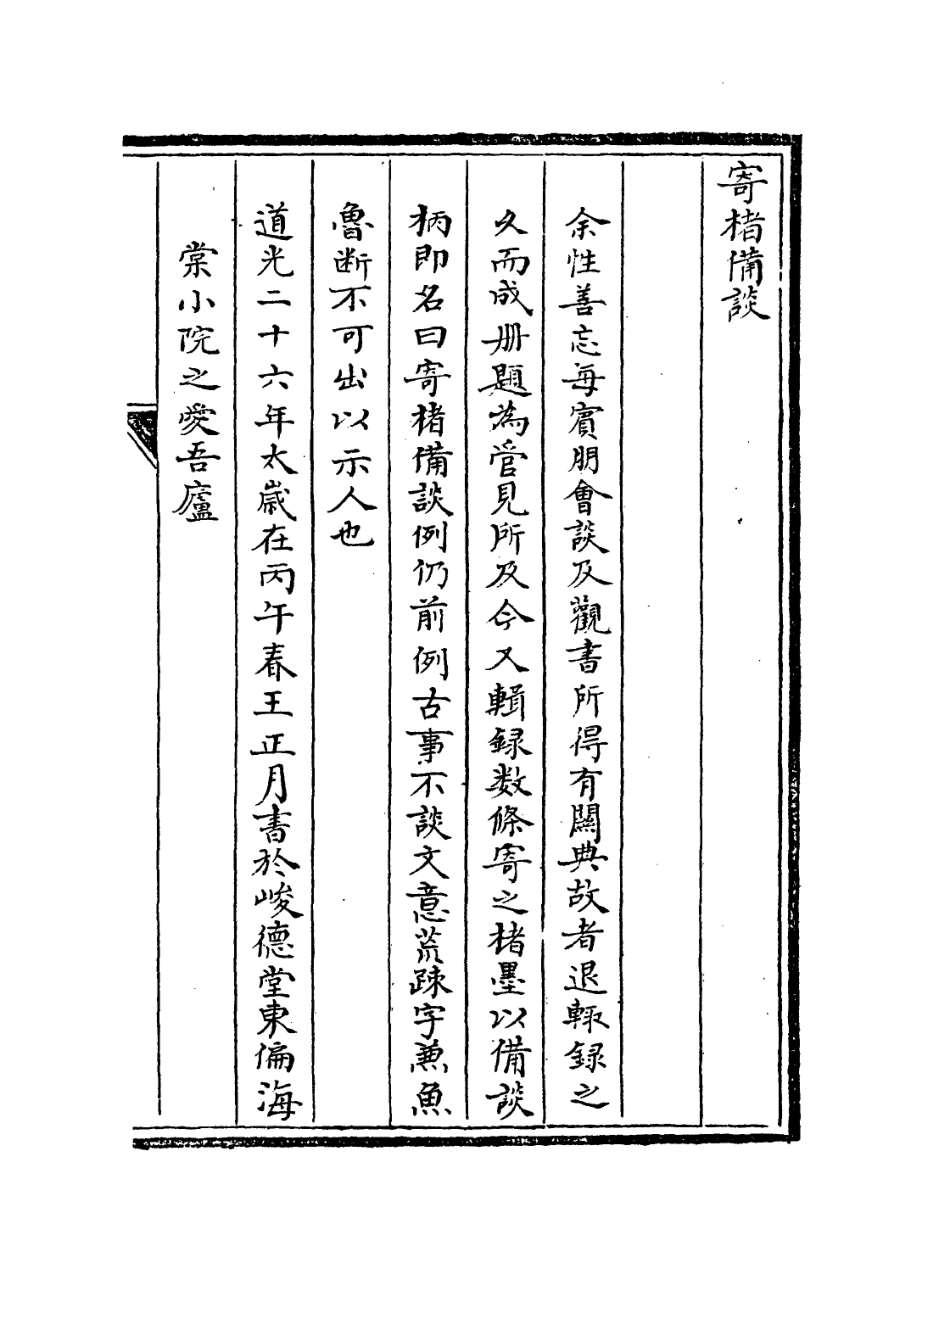 寄楮備談
余性善忘每賓朋會談及觀書所得有關典故者退輙錄之
久而成册題為管見所及今又輯録数條寄之楮墨以備談
柄即名曰寄楮備談例仍前例古事不談文意荒疎字兼魚
魯断不可出以示人也
道光二十六年太嵗在丙午春王正月書於峻德堂東偏海
棠小院之愛吾廬